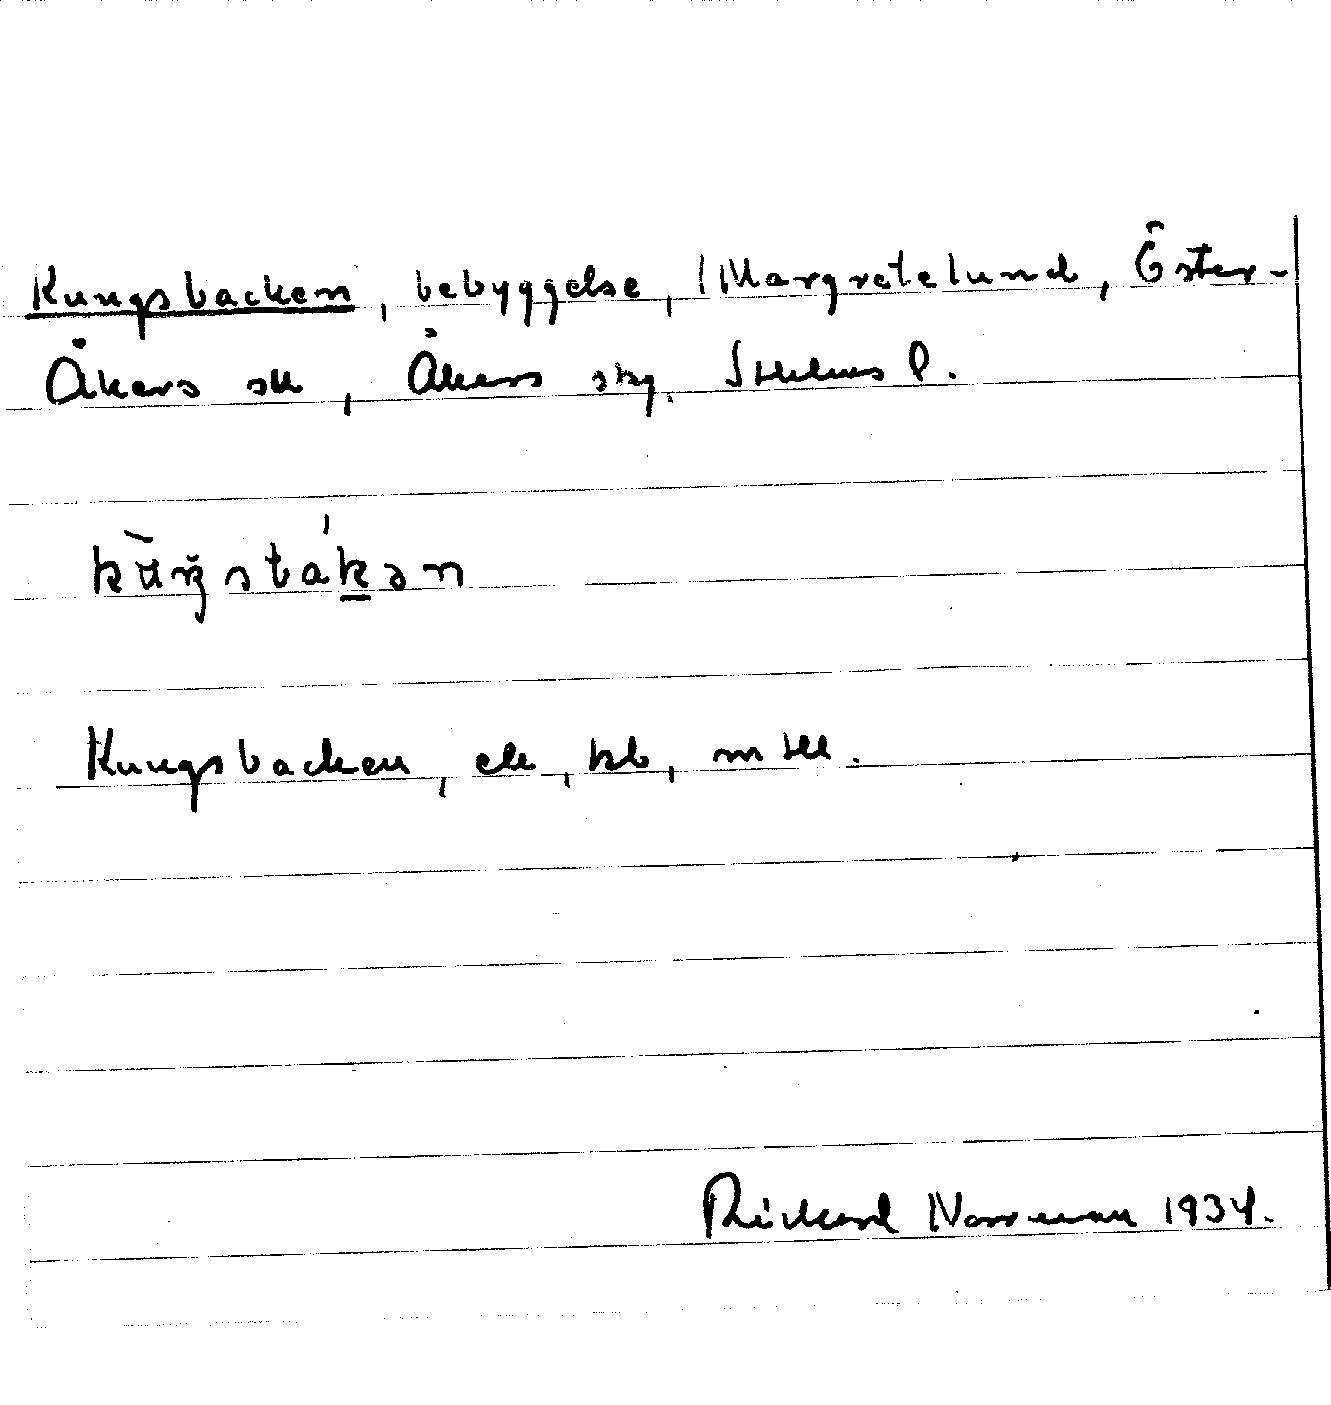 Kungsbacken, bebyggelse, Margretelund, Öster-
Åkers sk, Åkers skg. Sthlms l.
Kungsbacken, ek, kb, m
Rickard Norrman 1934.